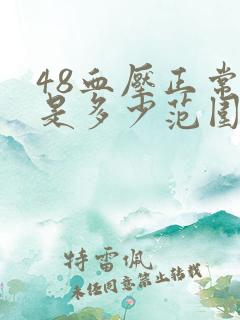 48血壓正常
是多少范围
特雷佩
未经同意禁止转载